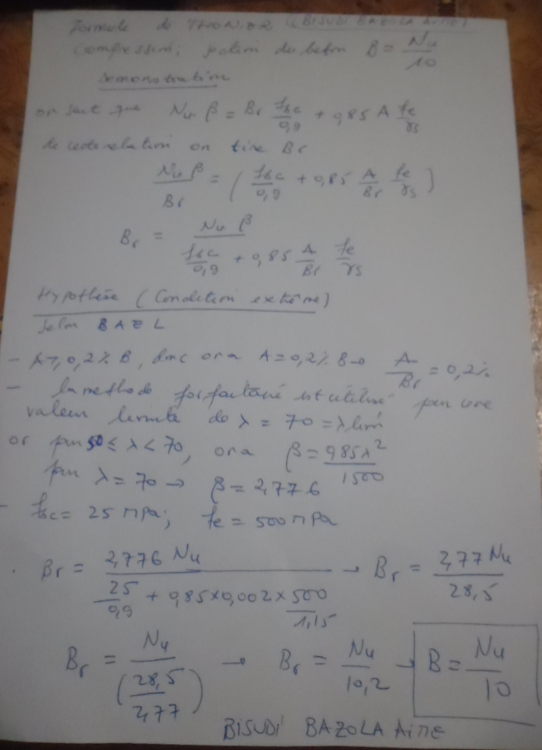 Formule de (BISUDI BAZOLA AiME)
Compression; poteau du beton B = Nu/10
Demonstration
on sait que Nu β = Br fbc/0,9 + 0,85 A fe/γs
de cette relation on tire Br
Nu β/Br = (fbc/0,9 + 0,85 A/Br fe/γs)
Br = Nu β/(fbc/0,9 + 0,85 A/Br fe/γs)
Hypothèse (Condition extrême)
selon BAZL
- A ≥ 0,2% B, donc on a A = 0,2% B → A/Br = 0,2%
- la methode forfaitaire est utilisé pour une
valeur limite de λ = 70 = λ lim
or pour 50 ≤ λ < 70, on a β = 0,85λ²/1500
pour λ = 70 → β = 2,776
- fbc = 25 MPa; fe = 500 MPa
. Br = 2,776 Nu/(25/0,9 + 0,85 x 0,002 x 500/1,15) → Br = 2,77 Nu/28,5
Br = Nu/(28,5/2,77) → Br = Nu/10,2 → B = Nu/10
BISUDI BAZOLA AiME